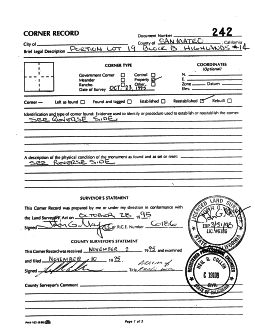 CORNER RECORD
Document Number 242
City of
County of SAN MATEO California
Brief Legal Description PORTION LOT 19 BLOCK B HIGHLANDS #14
CORNER TYPE
COORDINATES
(Optional)
Government Corner Control
Meander Property
Rancho Other
Date of Survey OCT. 23, 1995
N.
E.
Zone Datum
Elev.
Corner — Left as found Found and tagged Established Reestablished Rebuilt
Identification and type of corner found: Evidence used to identify or procedure used to establish or reestablish the corner:
SEE REVERSE SIDE
A description of the physical condition of the monument as found and as set or reset:
SEE REVERSE SIDE
SURVEYOR'S STATEMENT
This Corner Record was prepared by me or under my direction in conformance with
the Land Surveyors' Act on OCTOBER 28, 1995
Signed L.S. or R.C.E. Number
COUNTY SURVEYOR'S STATEMENT
This Corner Record was received NOVEMBER 2 1995 and examined
and filed NOVEMBER 10 1995
Signed
County Surveyor's Comment
Page 1 of 2